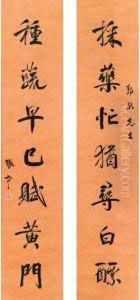 採藥忙猶尋白
先生
種蔬早已賦黃門
張